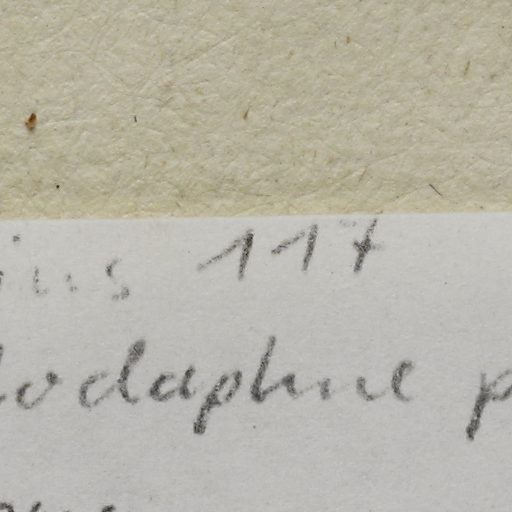 ius 117
lodaphne p